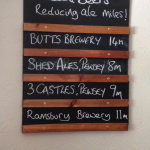 Reducing ale miles!
BUTTS BREWERY 14m
SHED ALES, PEWSEY 8m
3 CASTLES, PEWSEY 9m
Ramsbury Brewery 11m